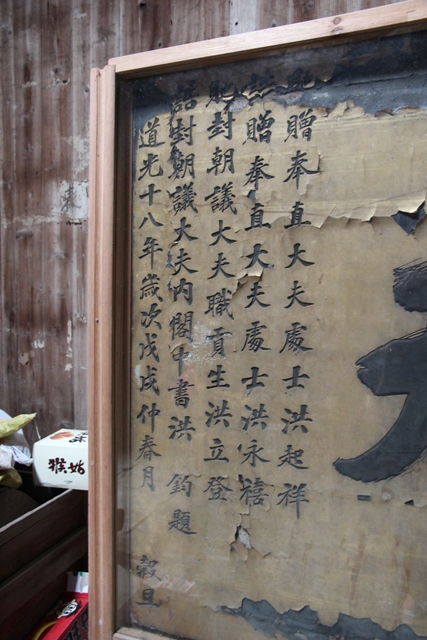 贈奉直大夫處士洪起祥
贈奉直大夫處士洪永禧
貤封朝議大夫職貢生洪立登
誥封朝議大夫內閣中書洪 鈞題
道光十八年歲次戊戌仲春月 穀旦
猴姑